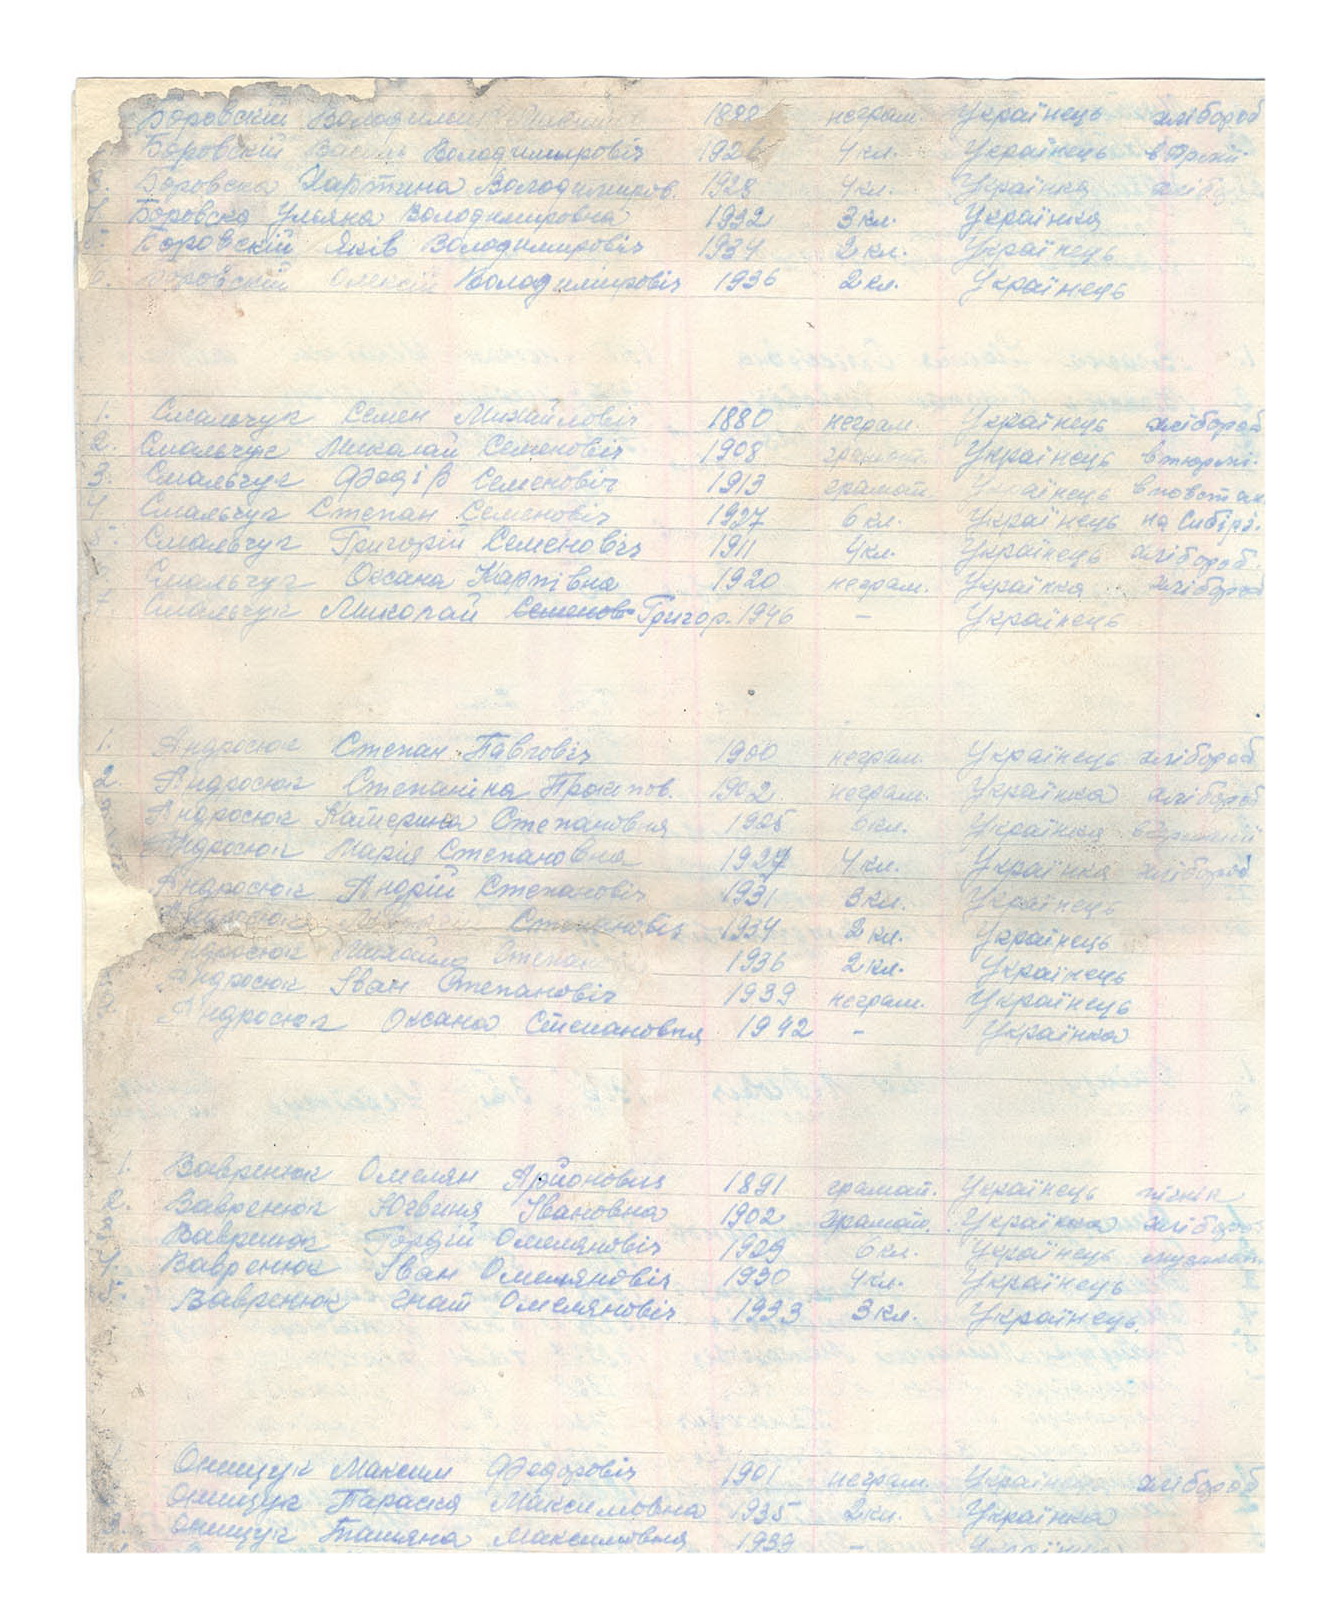 Боровский Володимир 1898 неграм. Українець хлібороб
Боровскій Василь Володимировіч 1926 4 кл. Українець в Армії
3. Боровска Мартина Володимиров. 1928 4 кл. Українка хлібор.
4. Боровска Уляна Володимировна 1932 3 кл. Українка
5. Боровскій Яків Володимировіч 1934 2 кл. Українець
6. Боровскій Олексій Володиміровіч 1936 2 кл. Українець
1. Смальчук Семен Михайловіч 1880 неграм. Українець хлібороб
2. Смальчук Миколай Семеновіч 1908 грамот. Українець в тюрмі.
3. Смальчук Федір Семеновіч 1913 грамот. Українець в повстан
4. Смальчук Степан Семеновіч 1927 6 кл. Українець на Сибірі.
5. Смальчук Григорій Семеновіч 1911 4 кл. Українець хлібороб.
Смальчук Оксана Карпівна 1920 неграм. Українка хлібороб
Смальчук Миколай Семенов Григор. 1946 – Українець
1. Андросюк Степан Павловіч 1900 неграм. Українець хлібороб
2. Андросюк Степаніна Прокопов. 1902 неграм. Українка хлібороб
Андросюк Катерина Степановня 1925 6 кл. Українка
Андросюк Марія Степановна 1927 4 кл. Українка хлібороб
Андросюк Андрій Степановіч 1931 3 кл. Українець
Андросюк Степановіч 1934 2 кл. Українець
Андросюк Михайло Степан 1936 2 кл. Українець
Андросюк Іван Степановіч 1939 неграм. Українець
Андросюк Оксана Степановня 1942 – Українка
1. Вавренюк Омелян 1891 грамот. Українець
2. Вавренюк Югвиня Івановна 1902 грамот. Українка хлібороб
3. Вавренюк Гордій Омеляновіч 1929 6 кл. Українець
4. Вавренюк Іван Омеляновіч 1930 4 кл. Українець
5. Вавренюк Гнат Омеляновіч 1933 3 кл. Українець.
1. Онищук Максим Федоровіч 1901 неграм. Українець хлібороб
Онищук Параскя Максимовна 1935 2 кл. Українка
3. Онищук Татяна Максимовня 1939 –